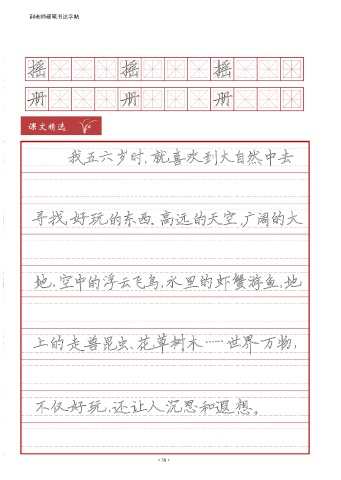 摇 摇 摇
册 册 册
课文精选
我五六岁时,就喜欢到大自然中去
寻找好玩的东西。高远的天空,广阔的大
地,空中的浮云飞鸟,水里的虾蟹游鱼,地
上的走兽昆虫、花草树木……世界万物,
不仅好玩,还让人沉思和遐想。